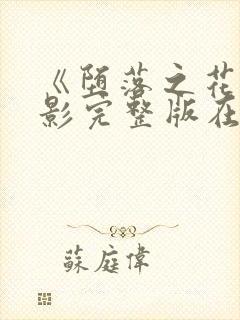 《堕落之花
影完整版在
蘇庭偉